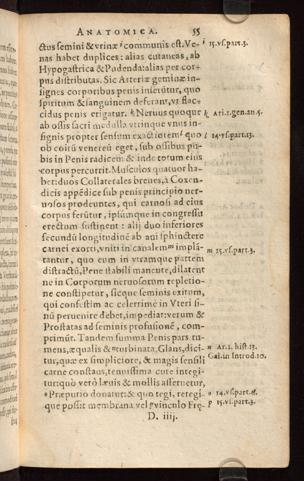 ANATOMICA. 55
ctus semini & vrinæ i communis est. Ve- i 15.vs.part.3.
nas habet duplices: alias cutaneas, ab
Hypogastrica & Pudenda: alias per cor-
pus distributas. Sic Arteriæ geminæ in-
signes corporibus penis inserütur, quo
spiritum & sanguinem deferant, vt flac-
cidus penis erigatur. k Neruus quoque k Ar.1.gen.an.5.
ab ossis sacri medulla vtrinque vnus in-
signis propter sensum exactiotem l quo l 14.vs.part.13.
ob coitū venereū eget, sub ossibus pu-
bis in Penis radicem & inde totum eius
corpus percurrit. Musculos quatuor ha-
bet: duos Collaterales breues, à Coxen-
dicis appēdice sub penis principio ner-
uosos prodeuntes, qui carnosi ad eius
corpus ferūtur, ipsumque in congressu
erectum sustinent: alij duo inferiores
secundū longitudinē ab ani sphinctere
carnei exorti, vniti in canalem m implā- m 15.vs.part.3.
tantur, quo eum in vtramque partem
distractū, Pene stabili manente, dilatent
ne in Corporum neruosorum repletio-
ne constipetur, sicque seminis exitum,
qui confestim ac celerrimè in Vteri si-
nū peruenire debet, impediat: verum &
Prostatas ad seminis profusionē, com-
primūt. Tandem summa Penis pars tu-
mens, æqualis & n turbinata, Glans, dici- n Ar.1.hist.13.
tur, quæ ex simpliciore, & magis sensili Gal.in Introd.10.
carne constans, tenuissima cute integi-
tur: quò verò læuis & mollis asseruetur,
o Præputio donatur: & quo tegi, retegi- o 14.vs.part.6.
que possit membrana vel p vinculo Fre- p 15.vs.part.3.
D. iiij.